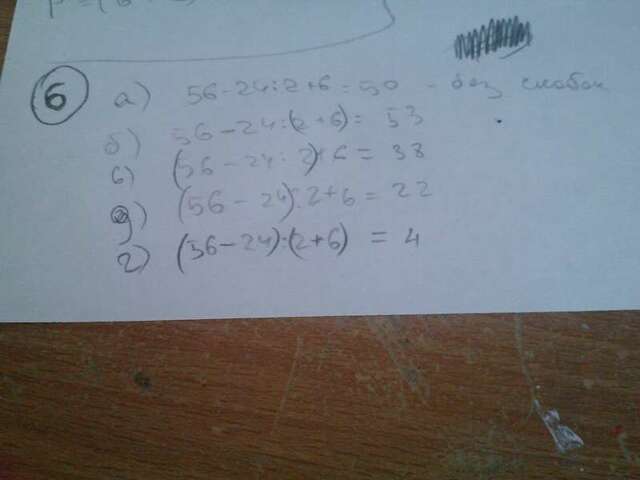 6 а) 56-24:2+6=50 - без скобок
б) 56-24:(2+6)= 53
в) (56-24:2)-6= 38
д) (56-24):2+6=22
г) (56-24):(2+6) = 4